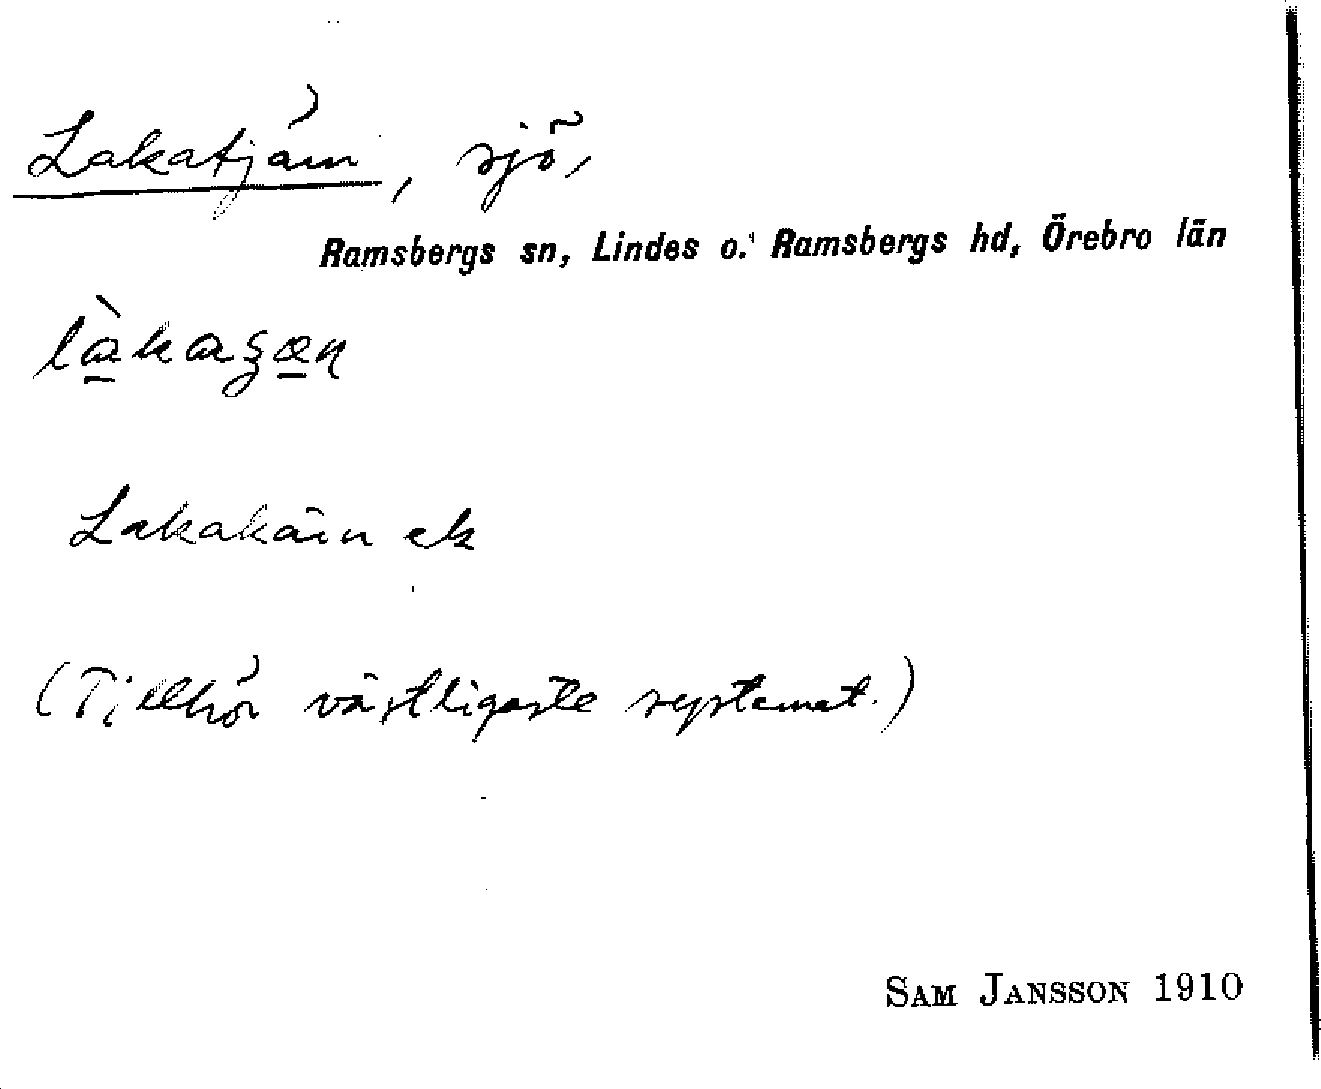 Lakatjärn, sjö,
Ramsbergs sn, Lindes o. Ramsbergs hd, Örebro län
Lakakärn ek
(Tillhör västligaste systemet.)
SAM JANSSON 1910